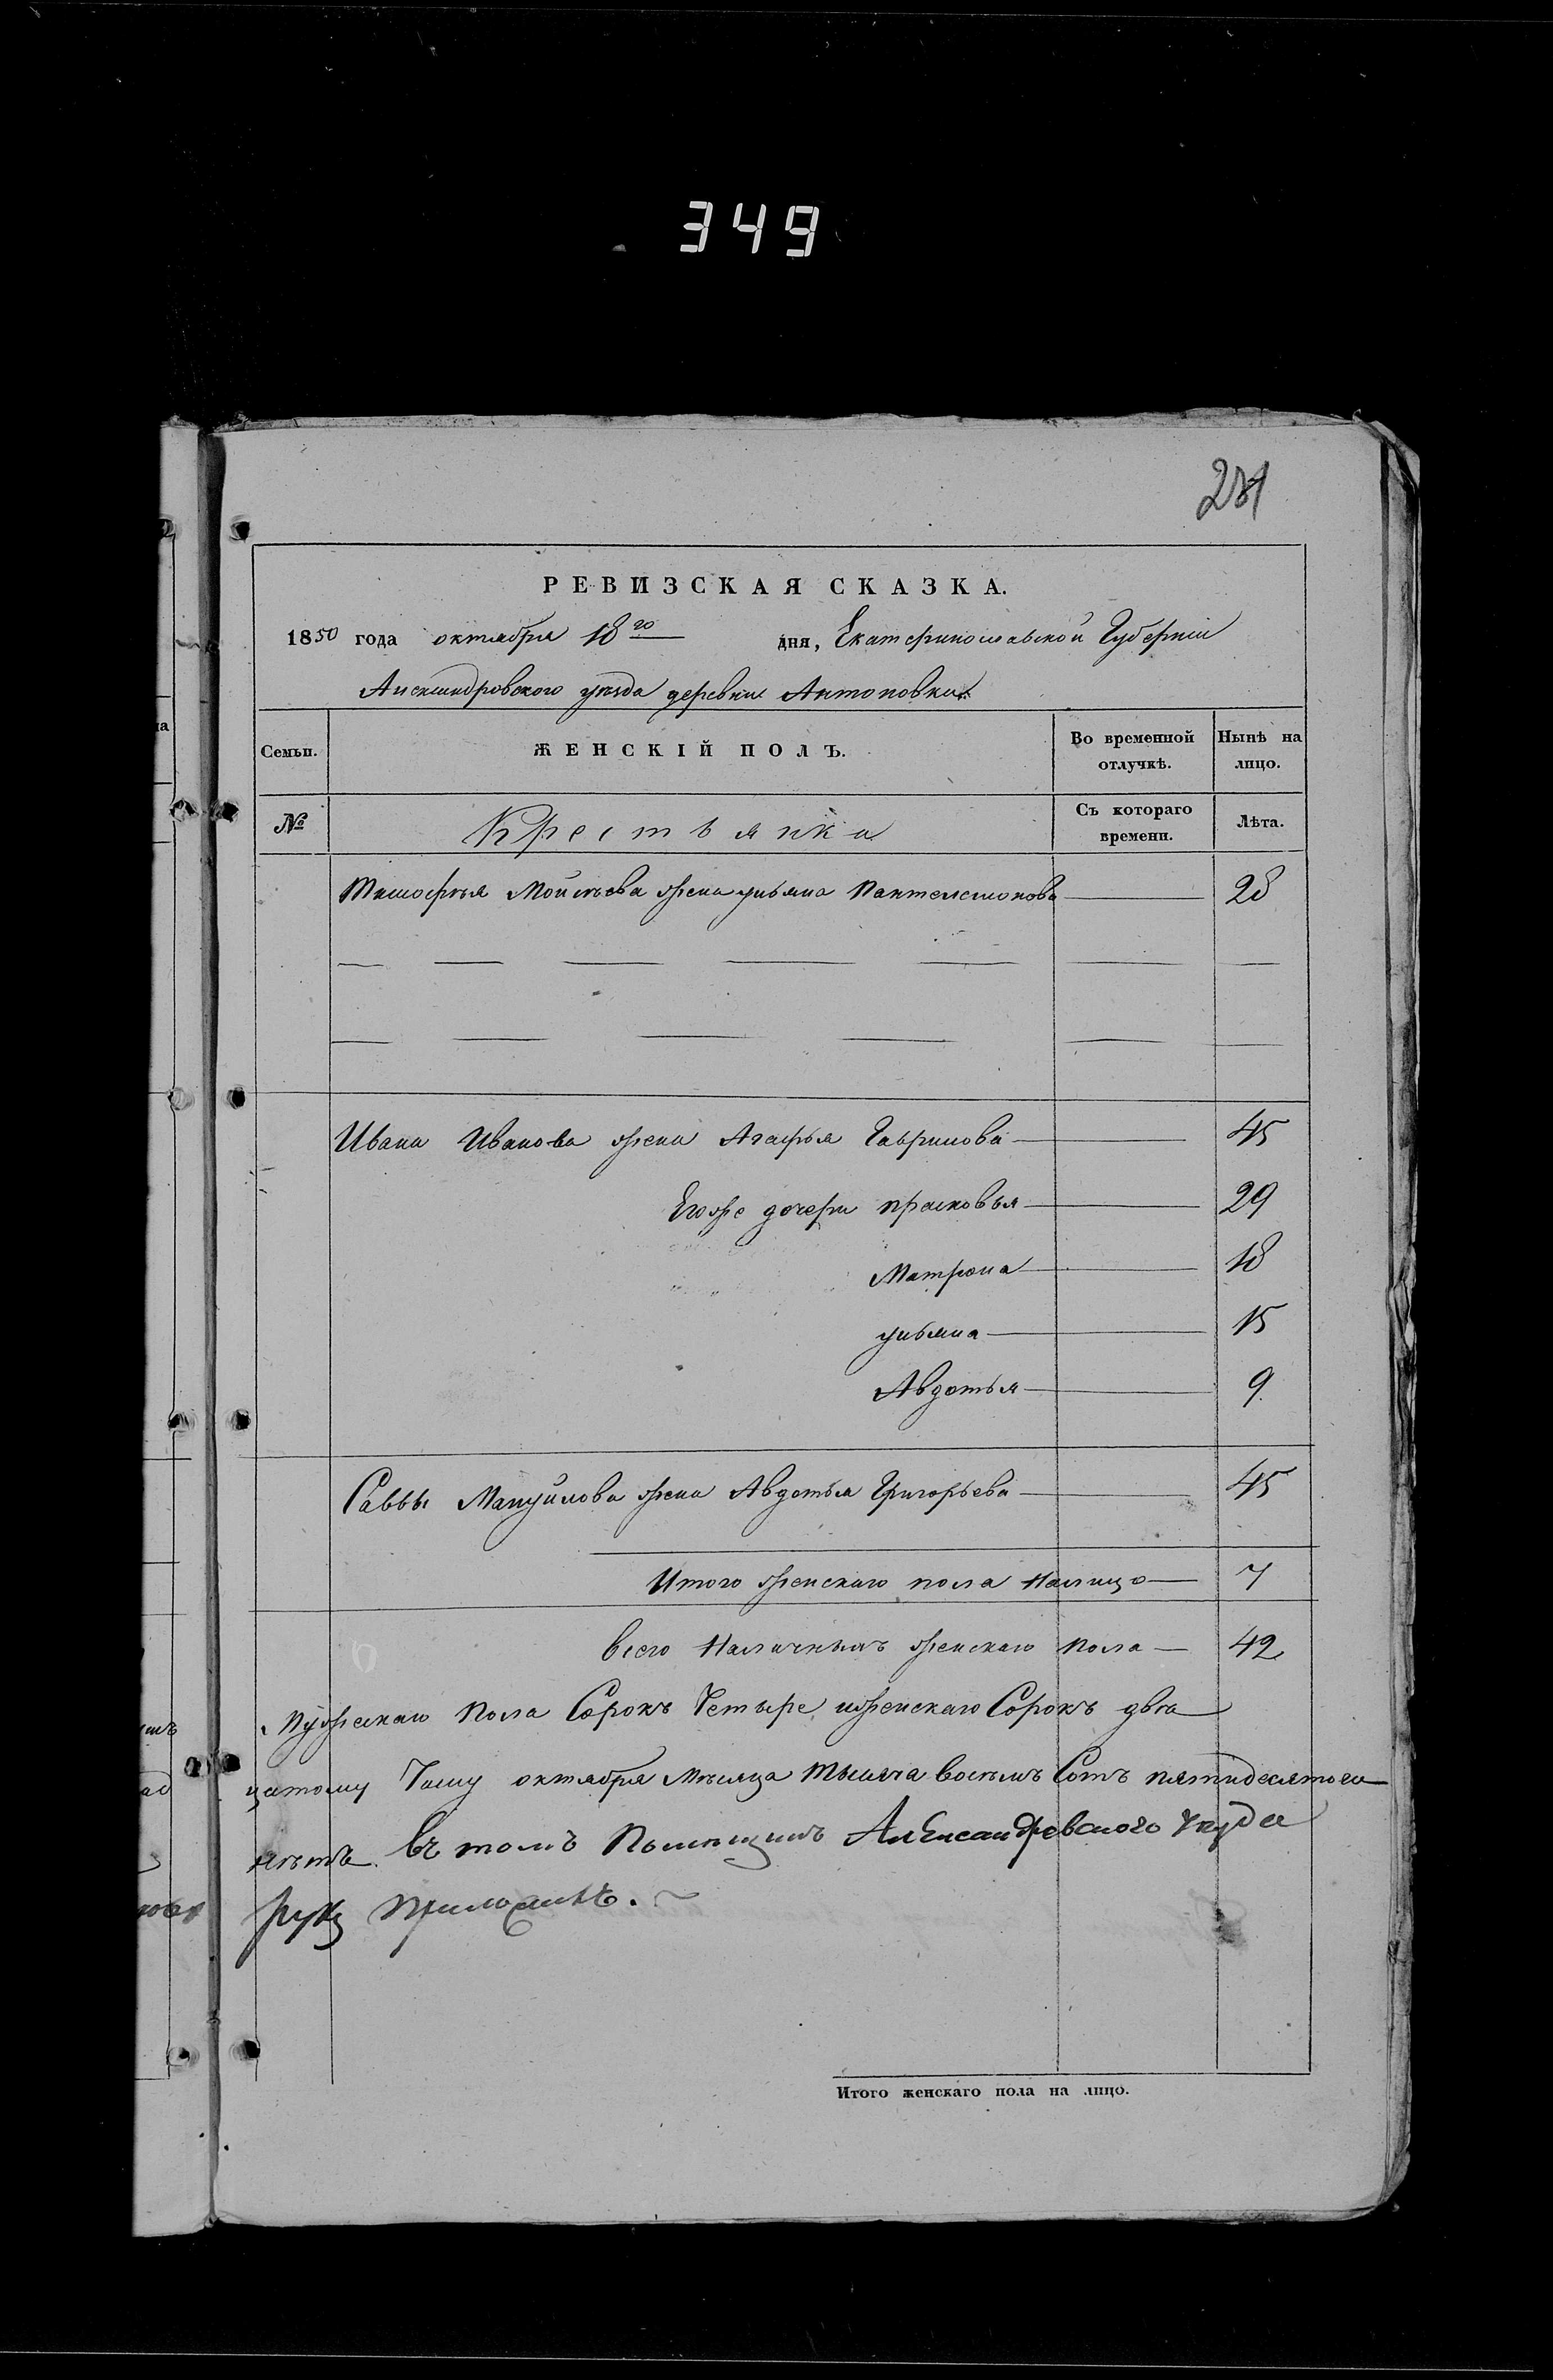 349
281
РЕВИЗСКАЯ СКАЗКА.
1850 года октября 18го дня, Екатеринославской Губернии
Александровского уезда деревни Антоновки
Семьи. ЖЕНСКІЙ ПОЛЪ. Во временной отлучкѣ. Нынѣ на лицо.
№ Крестьянка Съ котораго времени. Лѣта.
Тимофея Мойсѣева жена ульяна Пантелемонова 28
Ивана Иванова жена Агафья Гаврилова 45
Егоже дочери прасковья 29
Матрона 18
ульяна 15
Авдотья 9
Саввы Мануйлова жена Авдотья Григорьева 45
Итого женскаго пола Налицо 7
всего Наличныхъ женскаго пола 42
Мужескаго пола Сорокъ Четыре иженскаго Сорокъ двѣ
цатому Числу октября Мѣсяца тысяча восѣмъ Сотъ пятидесятого
въ томъ Помѣщикъ Александревского
руку приложилъ.
Итого женскаго пола на лицо.